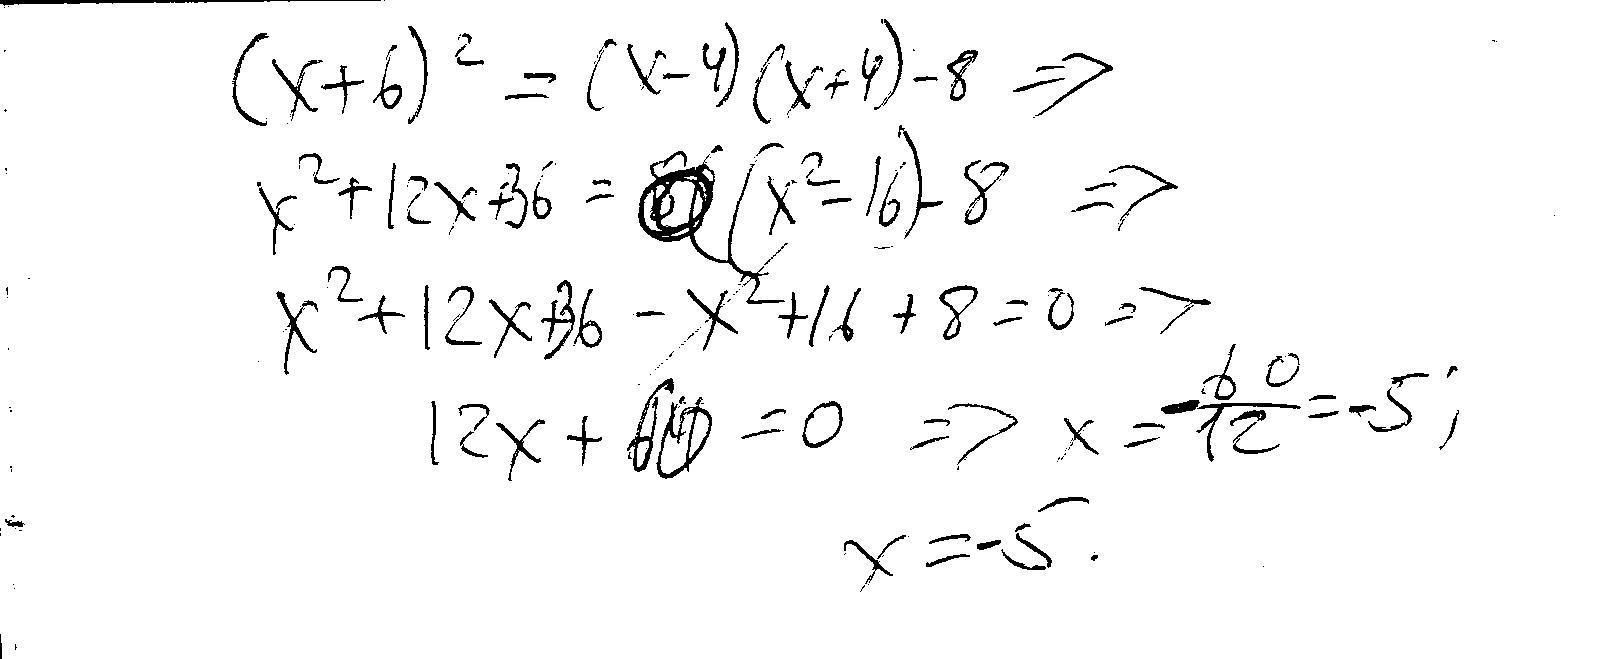 (x+6)² = (x-4)(x+4)-8 =>
x²+12x+36 = (x²-16)-8 =>
x²+12x+36 - x²+16 +8=0 =>
12x + 60 =0 => x = -60/12 = -5;
x = -5.